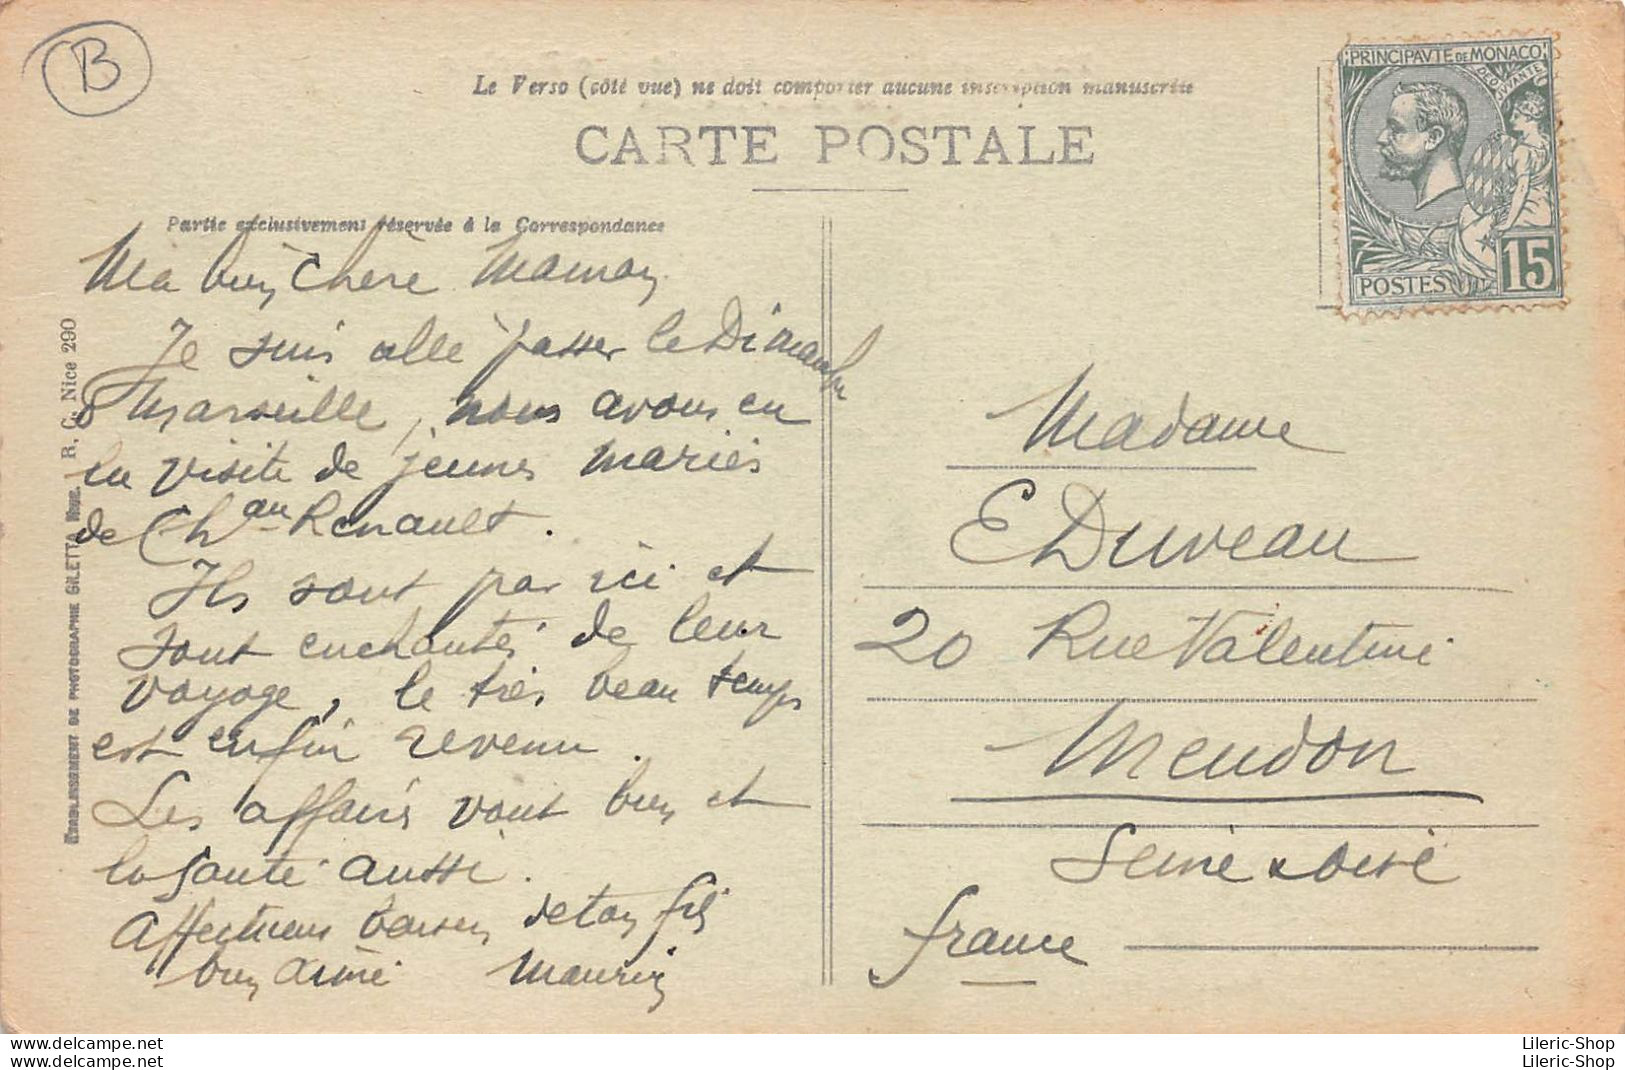 B
Le Verso (côté vue) ne doit comporter aucune inscription manuscrite
CARTE POSTALE
PRINCIPAVTE DE MONACO
DEO JUVANTE
POSTES 15
Partie exclusivement réservée à la Correspondance
Ma bien Chère Maman
Je suis allé passer le Dimanche
à Marseille, nous avons eu
la visite de jeunes mariés
de Chau Renault.
Ils sont par ici et
sont enchantés de leur
voyage, le très beau temps
est enfin revenu.
Les affaires vont bien et
la santé aussi.
Affectueux baisers de ton fils
bien aimé Maurice
ETABLISSEMENT DE PHOTOGRAPHIE GILETTA, NICE. R. C. Nice 290
Madame
E Duveau
20 Rue Valentine
Meudon
Seine & Oise
France
Lileric-Shop
Lileric-Shop
delcampe.net
delcampe.net